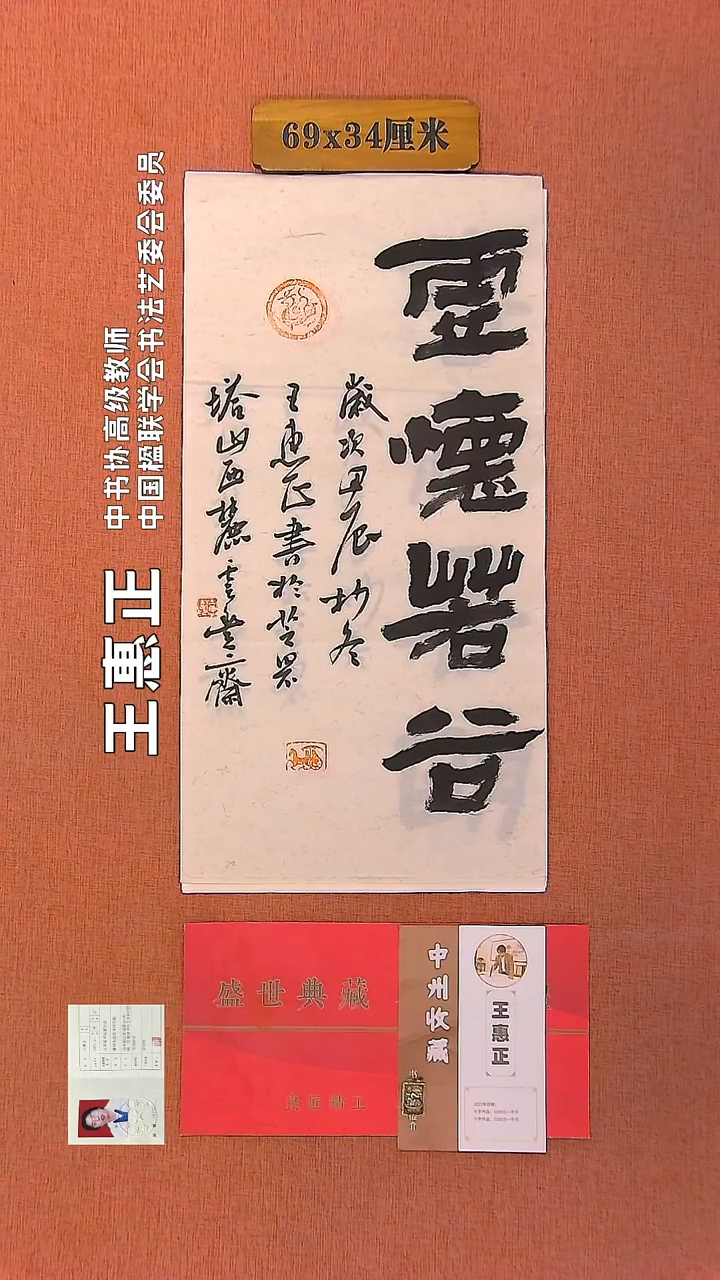 69x34厘米
虚懷若谷
歲次甲辰杪冬
王惠正書於芝罘
塔山西麓雲
齋
王惠正
中书协高级教师
中国楹联学会书法艺委会委员
盛世典藏
良匠精工
中州收藏
王惠正